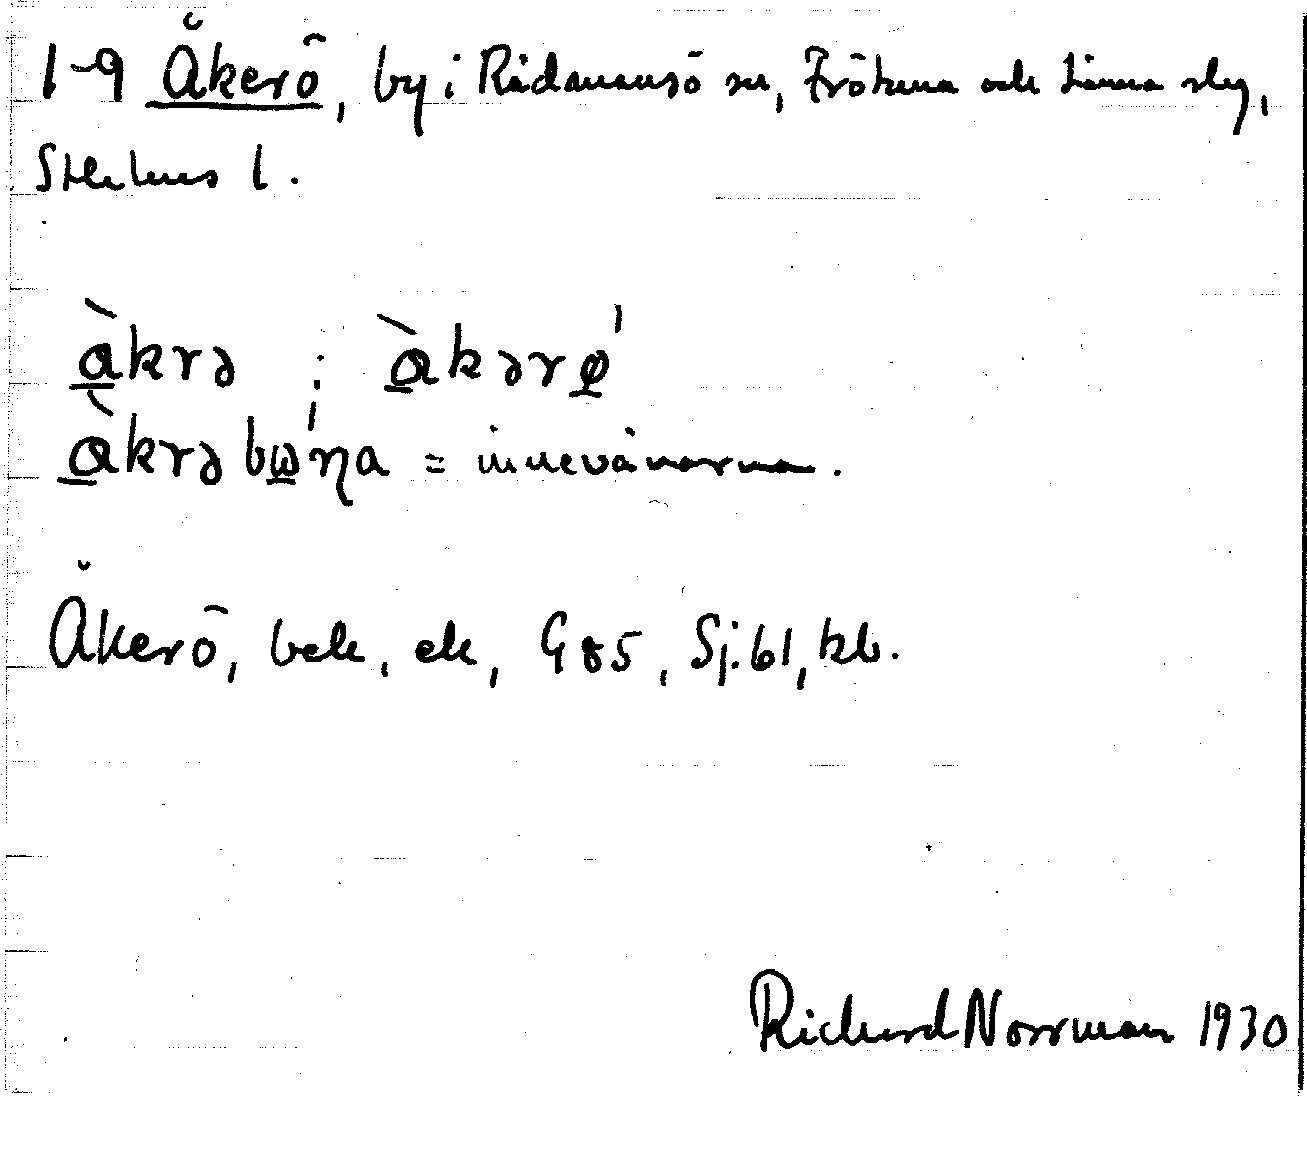 1-9 Åkerö, by i Rådmansö sn, Frötuna och Länna slg,
Sthlms l.
à̱krə : à̱kərø̱'
à̱krəbω̱'ŋa = innevånarna.
Åkerö, bek, ek, G 85, Sj: 61, kb.
Richard Norrman 1930